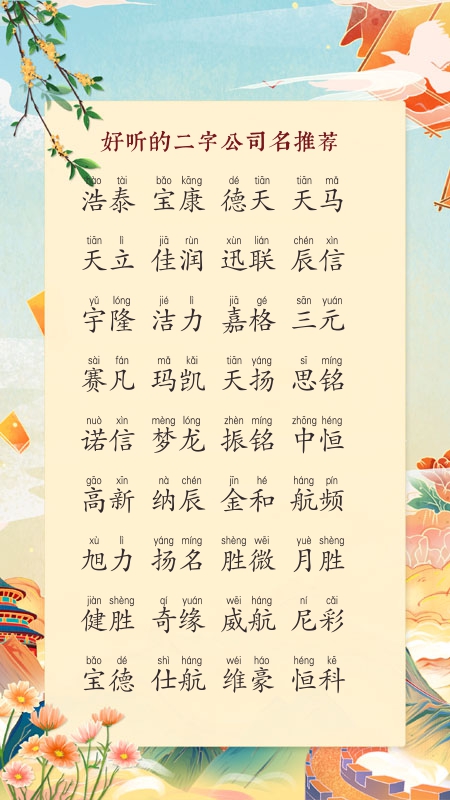 好听的二字公司名推荐
hào tài bǎo kāng dé tiān tiān mǎ
浩泰 宝康 德天 天马
tiān lì jiā rùn xùn lián chén xìn
天立 佳润 迅联 辰信
yǔ lóng jié lì jiā gé sān yuán
宇隆 洁力 嘉格 三元
sài fán mǎ kǎi tiān yáng sī míng
赛凡 玛凯 天扬 思铭
nuò xìn mèng lóng zhèn míng zhōng héng
诺信 梦龙 振铭 中恒
gāo xīn nà chén jīn hé háng pín
高新 纳辰 金和 航频
xù lì yáng míng shèng wēi yuè shèng
旭力 扬名 胜微 月胜
jiàn shèng qí yuán wēi háng ní cǎi
健胜 奇缘 威航 尼彩
bǎo dé shì háng wéi háo héng kē
宝德 仕航 维豪 恒科